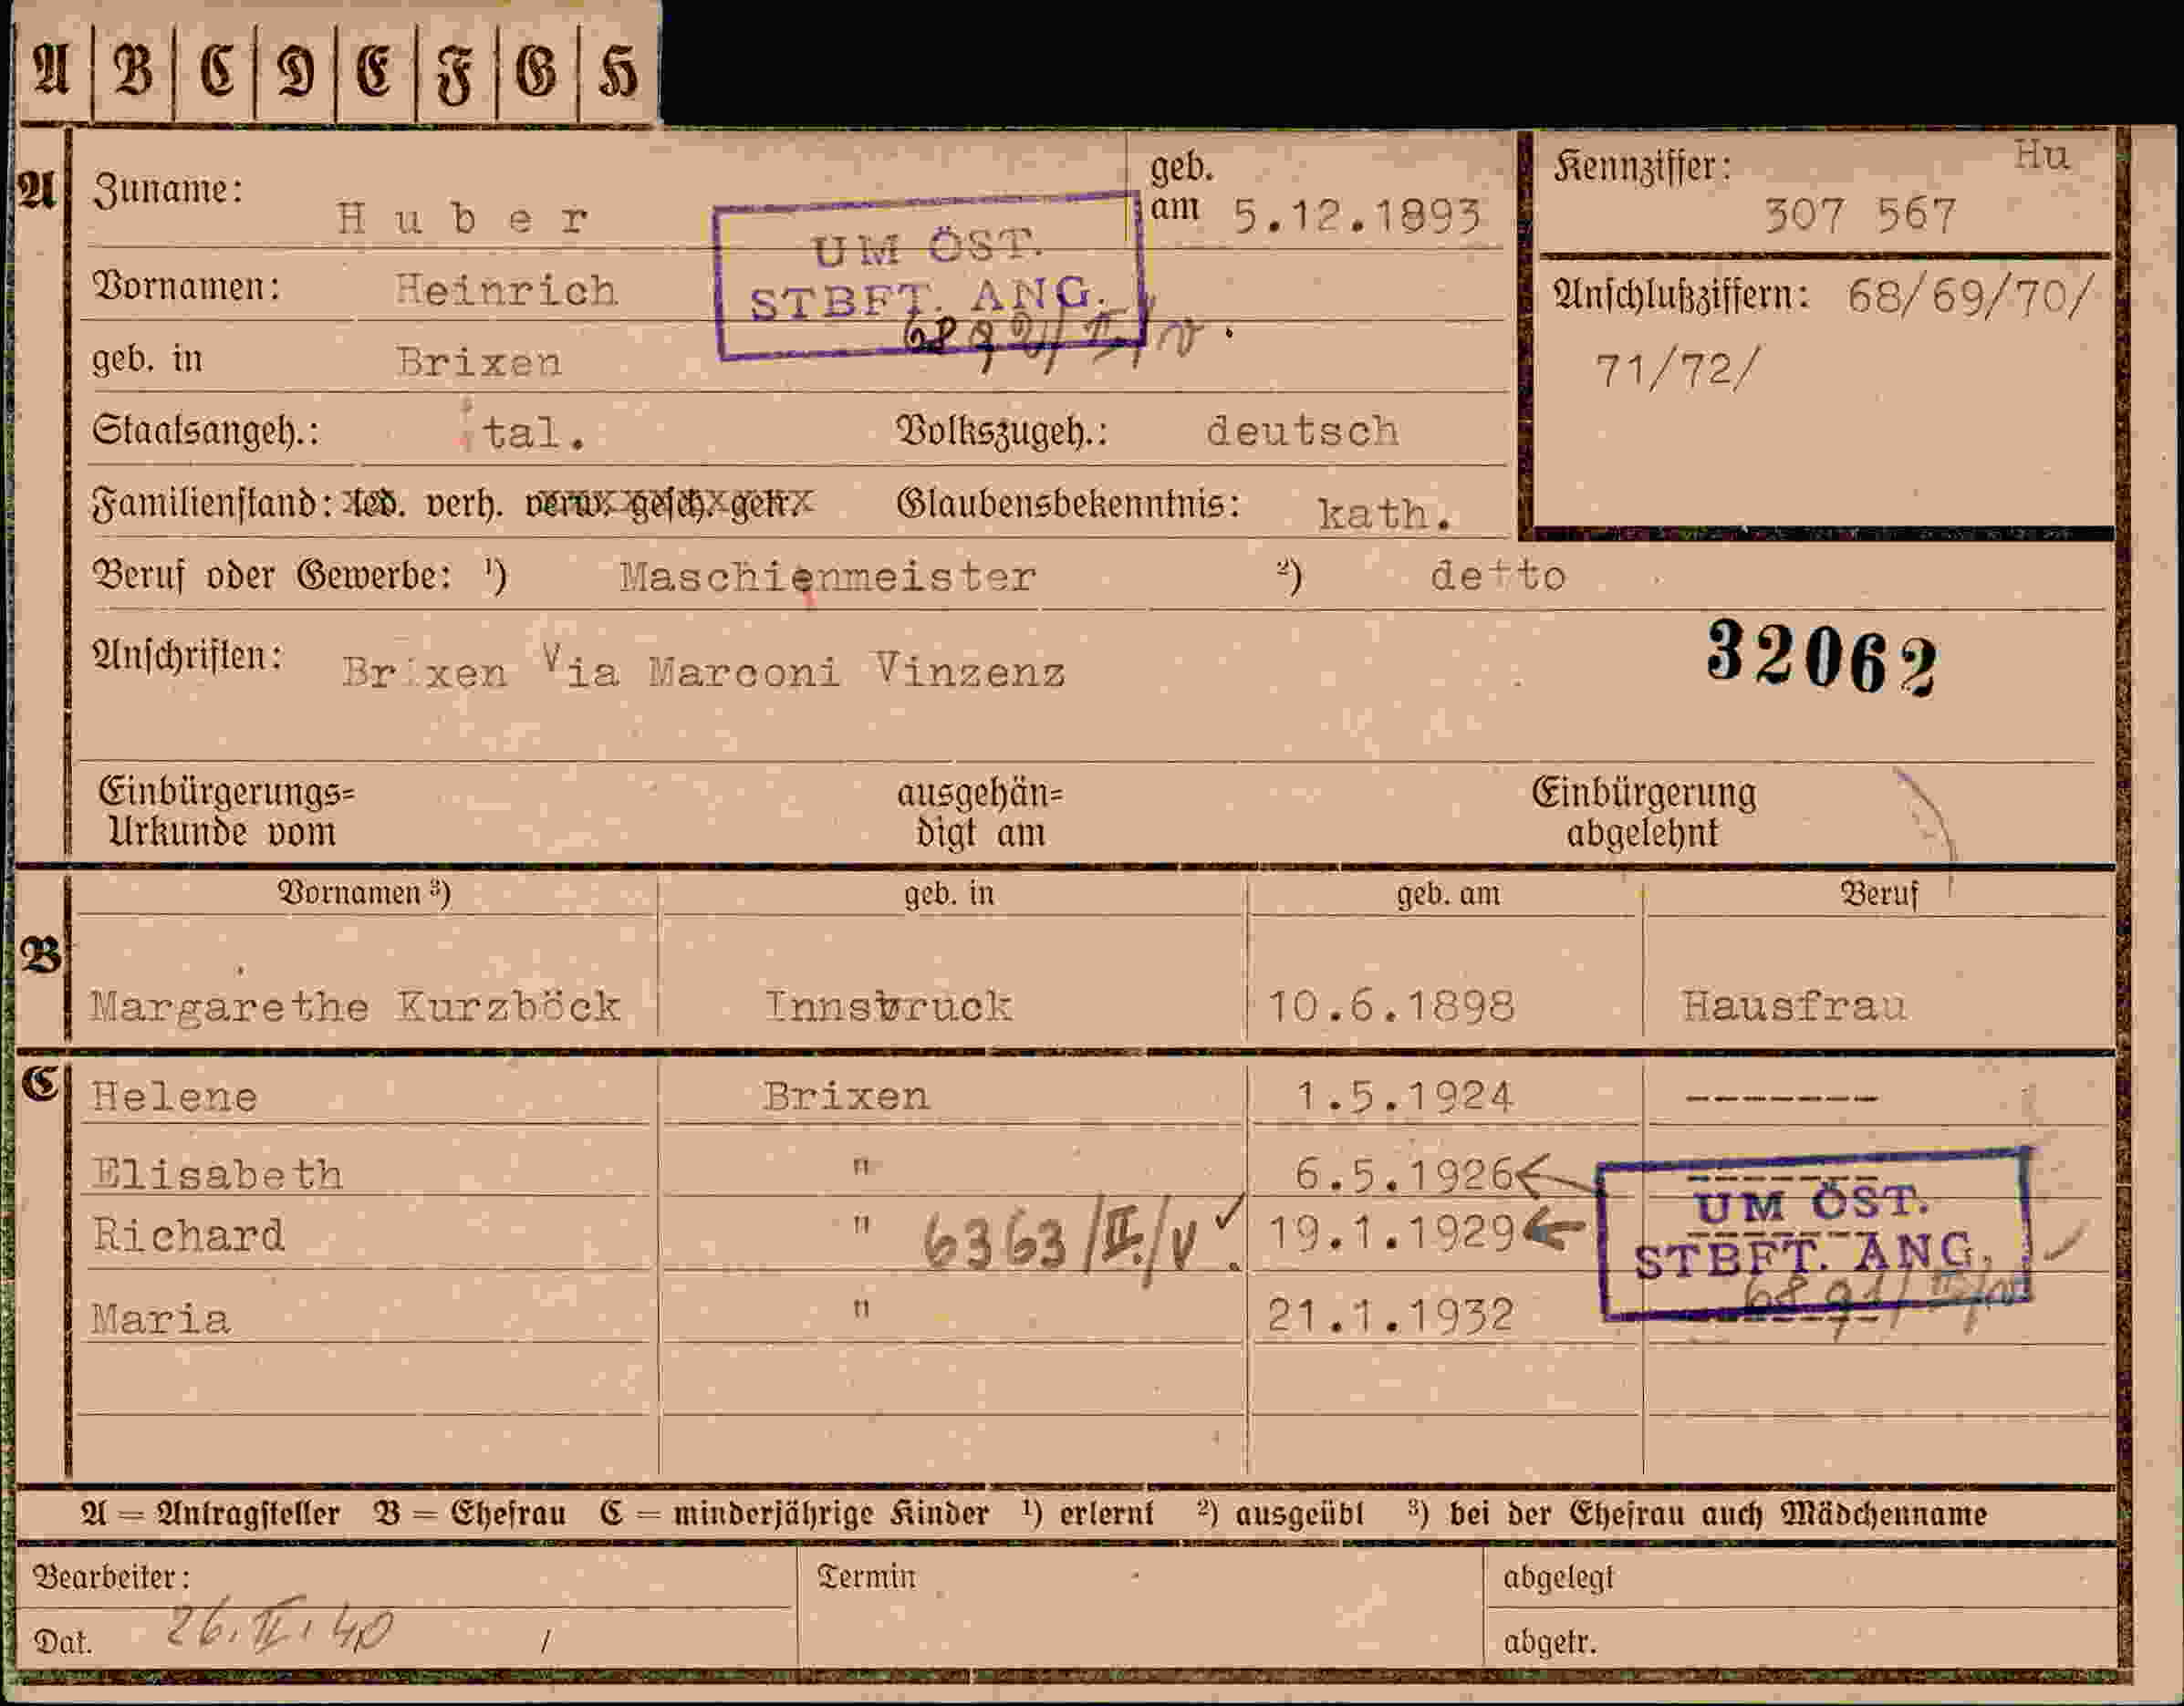 A B C D E F G H
A Zuname: Huber geb. am 5.12.1893 Kennziffer: Hu 307 567
UM ÖST.
STBFT. ANG.
Vornamen: Heinrich Anschlußziffern: 68/69/70/
geb. in Brixen 71/72/
Staatsangeh.: ital. Volkszugeh.: deutsch
Familienstand: led. verh. verw. gesch. getr. Glaubensbekenntnis: kath.
Beruf oder Gewerbe: ¹) Maschienmeister ²) detto
Anschriften: Brixen Via Marconi Vinzenz 32062
Einbürgerungs= ausgehän= Einbürgerung
Urkunde vom digt am abgelehnt
Vornamen ³) geb. in geb. am Beruf
B
Margarethe Kurzböck Innsbruck 10.6.1898 Hausfrau
C Helene Brixen 1.5.1924 --------
Elisabeth " 6.5.1926
Richard " 6363/II./V. 19.1.1929
UM ÖST.
STBFT. ANG.
Maria " 21.1.1932
A = Antragsteller B = Ehefrau C = minderjährige Kinder ¹) erlernt ²) ausgeübt ³) bei der Ehefrau auch Mädchenname
Bearbeiter: Termin abgelegt
Dat. 26.II.40 / abgetr.